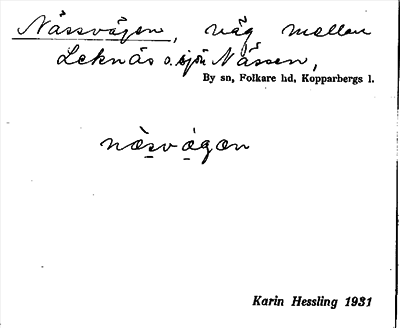 Nässvägen, väg mellan
Leknäs o. sjön Nässen,
By sn, Folkare hd, Kopparbergs l.
næ̀svä̀gæn
Karin Hessling 1931